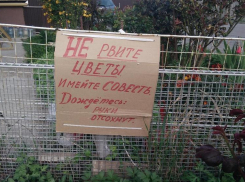 НЕ РВИТЕ
ЦВЕТЫ
ИМЕЙТЕ СОВЕСТЬ
ДОЖДЁТЕСЬ:
РУКИ
ОТСОХНУТ.